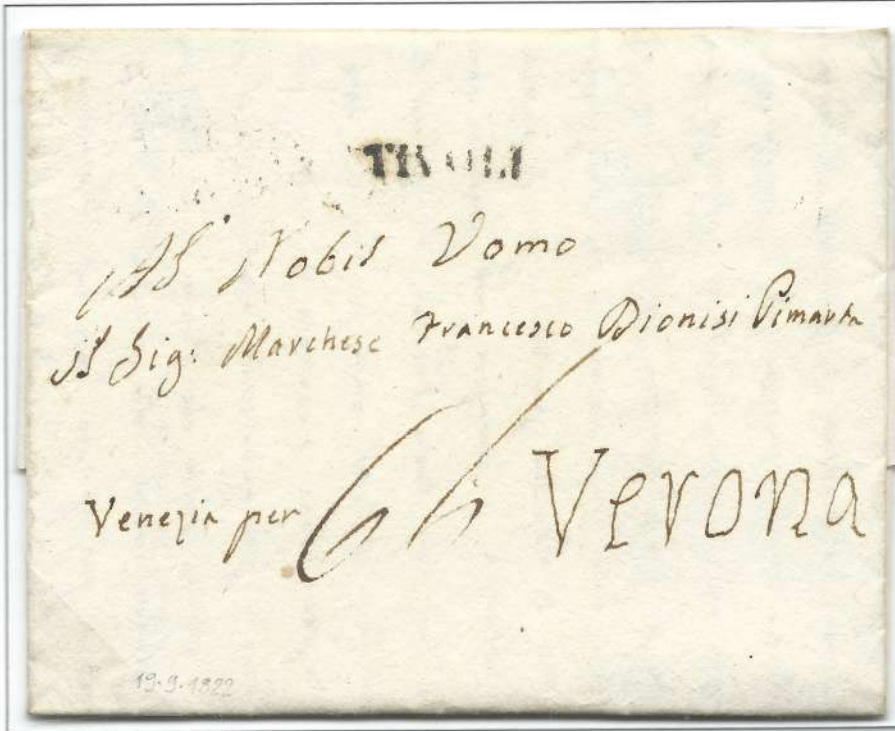 TIVOLI
Al Nobil Vomo
Il Sig: Marchese Francesco Dionisi Pimarta
Venezia per 66 Verona
19-9-1822